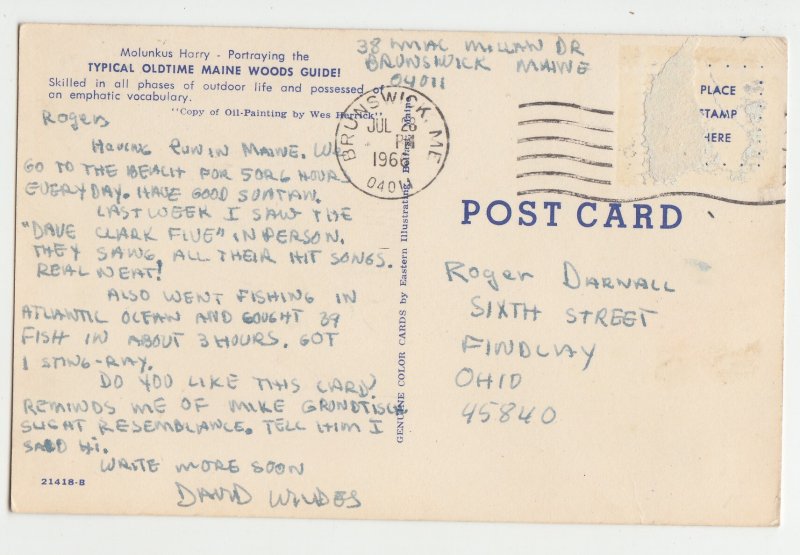 Molunkus Harry - Portraying the
TYPICAL OLDTIME MAINE WOODS GUIDE!
Skilled in all phases of outdoor life and possessed of
an emphatic vocabulary.
"Copy of Oil-Painting by Wes Herrick"
38 MAC MILLAN DR
BRUNSWICK MAINE
04011
BRUNSWICK, ME
JUL 28
PM
1966
0401
PLACE
STAMP
HERE
POST CARD
Roger
HAVING FUN IN MAINE. WE
GO TO THE BEACH FOR 5 OR 6 HOURS
EVERYDAY. HAVE GOOD SUNTAN.
LAST WEEK I SAW THE
"DAVE CLARK FIVE" IN PERSON.
THEY SANG, ALL THEIR HIT SONGS.
REAL NEAT!
ALSO WENT FISHING IN
ATLANTIC OCEAN AND COUGHT 39
FISH IN ABOUT 3 HOURS. GOT
1 STING-RAY.
DO YOU LIKE THIS CARD?
REMINDS ME OF MIKE
SLIGHT RESEMBLANCE. TELL HIM I
SAID HI.
WRITE MORE SOON
DAVID WILDES
21418-B
GENUINE COLOR CARDS by Eastern Illustrating, Belfast, Maine
Roger DARNALL
SIXTH STREET
FINDLAY
OHIO
45840